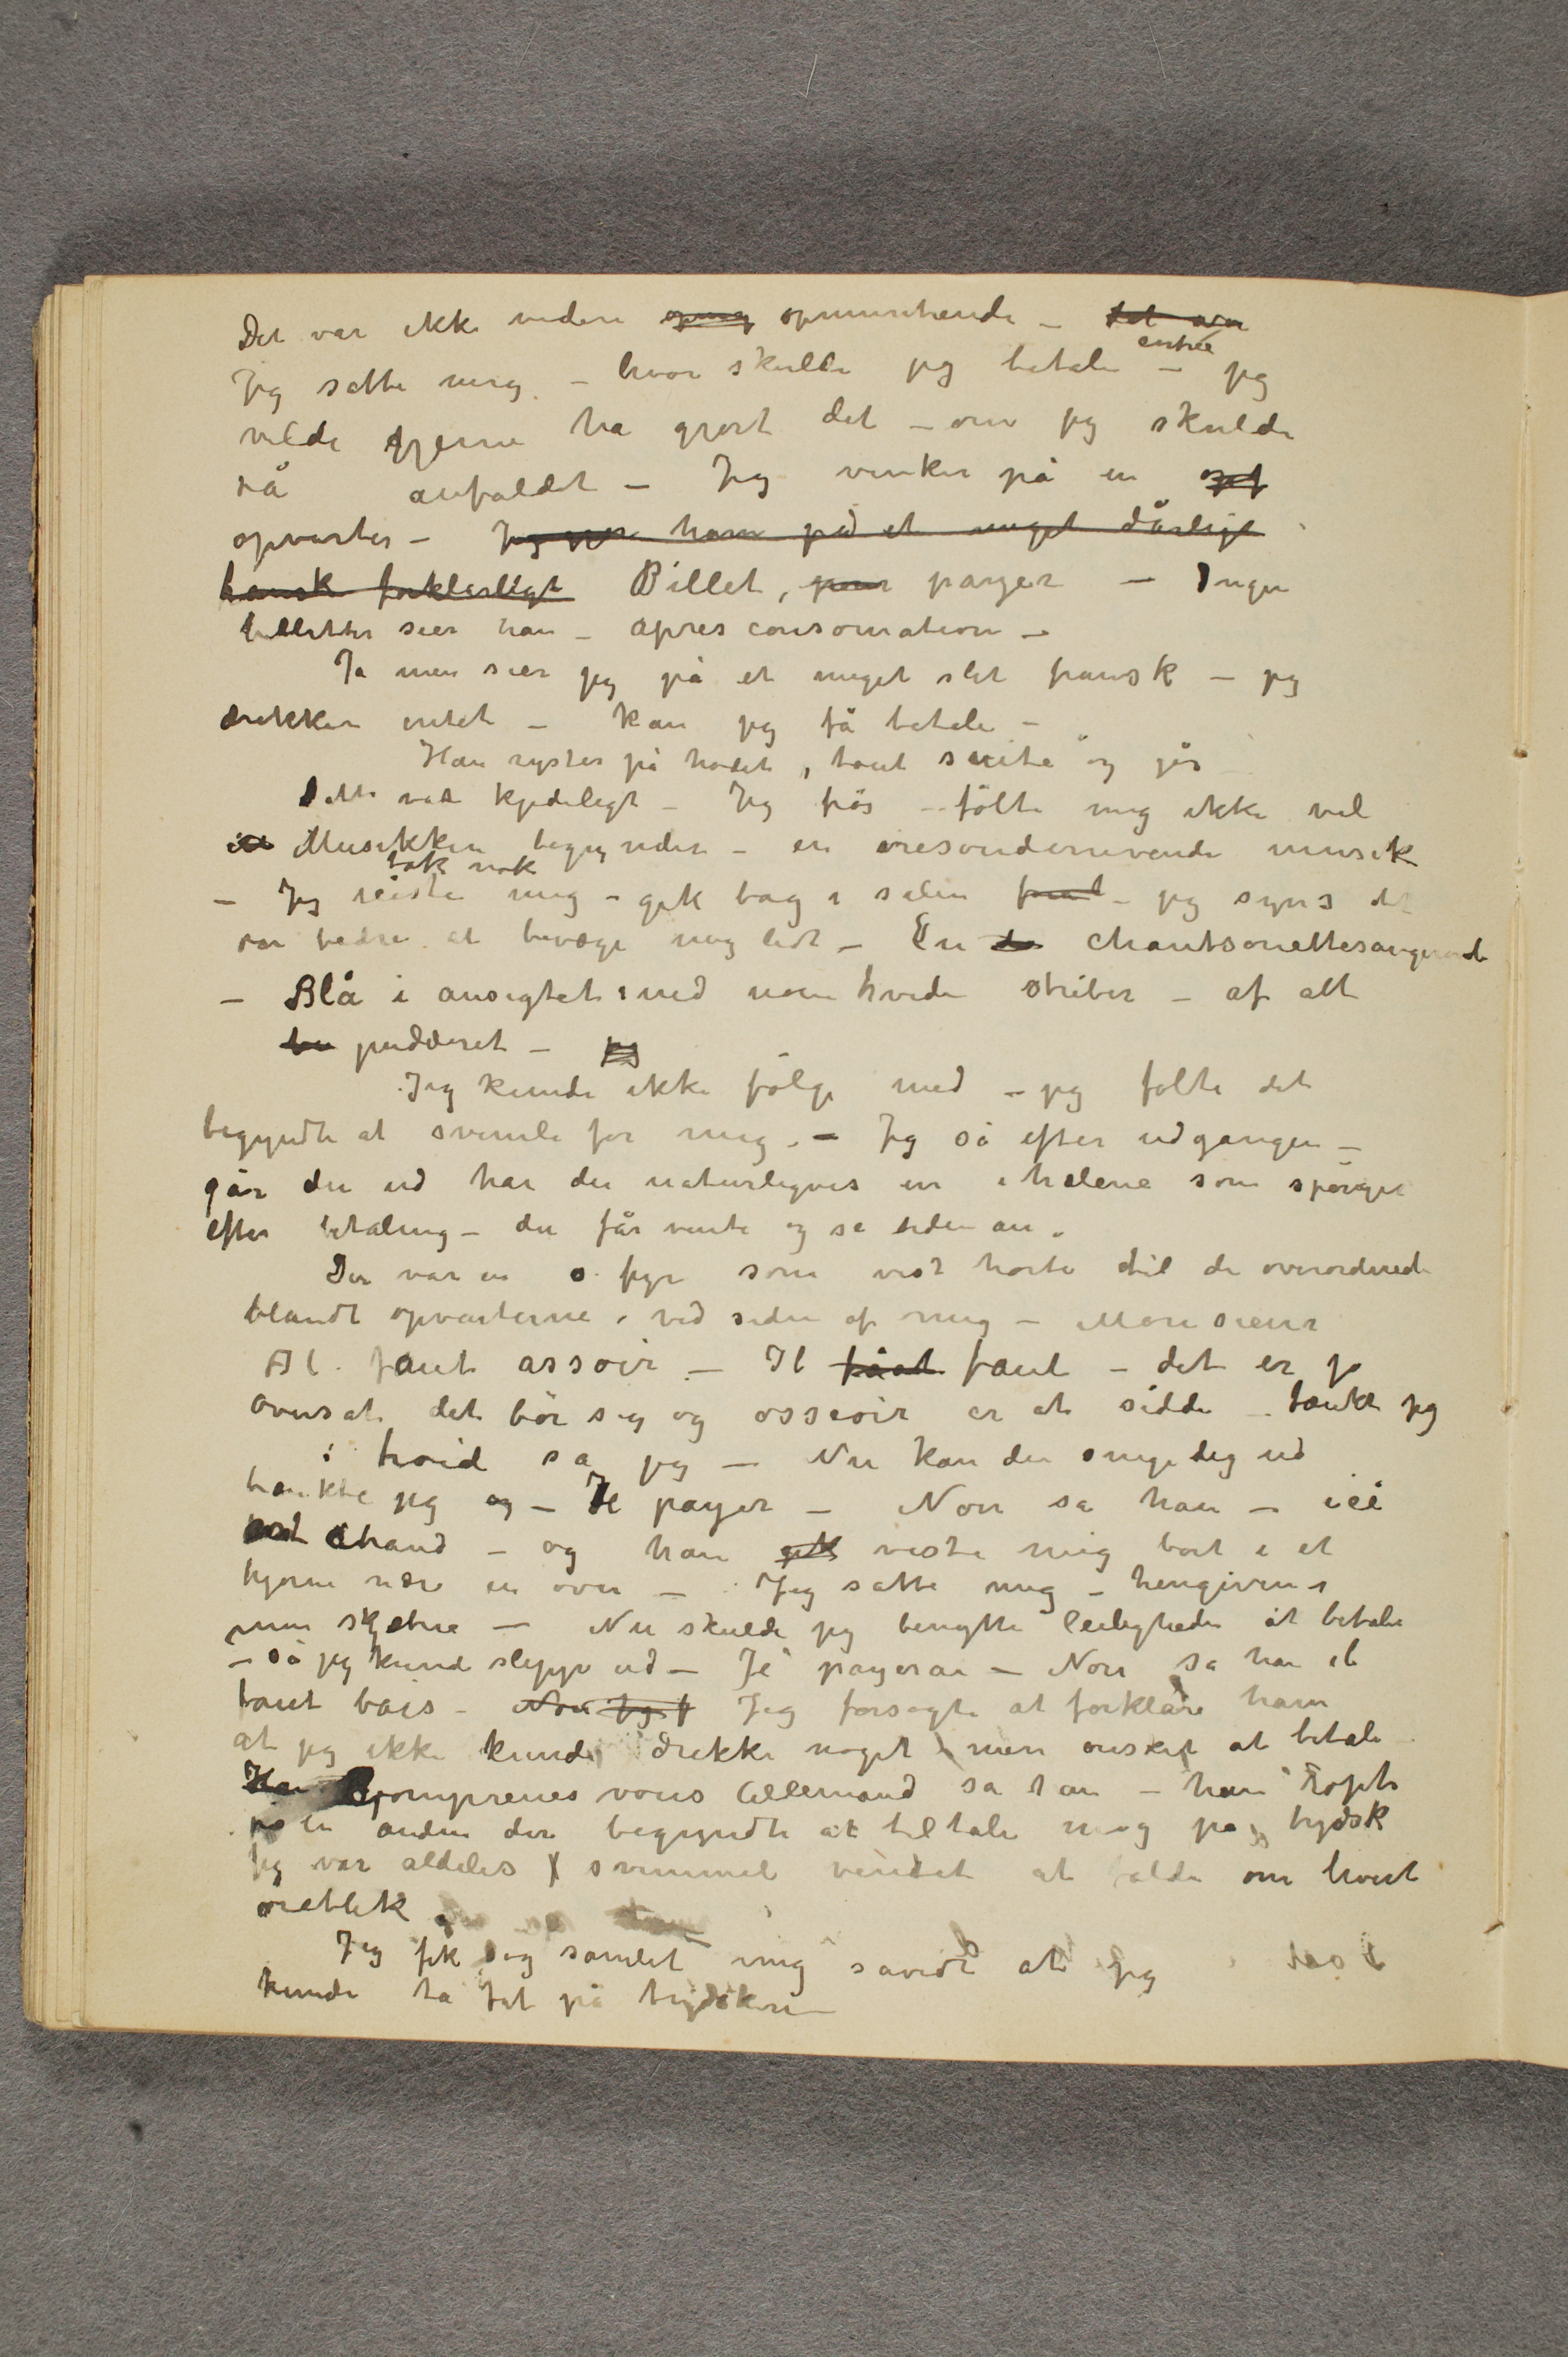 Det var ikke videre opmuntrende –
Jeg satte mig – hvor skulde jeg betale entree – jeg
vilde gjerne ha gjort det – om jeg skulde
få anfaldet – Jeg vinker på en
opvarter – Jeg gjør ham på et meget dårligt
fransk forklarligt Billet, pour payer – Ingen
billetter sier han – apres consomation –
Ja men sier jeg på et meget slet fransk – jeg
drikker intet – kan jeg få betale –
Han ryster på hodet, tout suite og går
Dette var kjedeligt – Jeg frös – følte mig ikke vel
Musikken begynder – en øresønderrivende musik
– Jeg reiste mig tok nok – gik bag i salen – jeg syns det
var bedre at bevæge mig lidt – En chantsonettesangerinde
– Blå i ansigtet med noen hvide striber – af alt
pudderet – jeg
Jeg kunde ikke følge med – jeg følte det
begyndte at svimle for mig. – Jeg så efter udgangen –
går du ud har du naturligvis en i hælene som spørger
efter betaling – du får vente og se tiden an.
Der var en fyr som vist hørte til de overordnede
blandt opvarterne, ved siden af mig – Monsieur
Il faut assoir – Il fåat faut – det er jo
oversat det bör sig og osseoir er at sidde – tænkte jeg
: hvid sa jeg – Nu kan du snige dig ud
tænkte jeg og – Je payer – Non sa han – ici
est chaud – og han gik viste mig bort i et
hjørne nær en ovn – Jeg satte mig – hengiven i
min skjebne – Nu skulde jeg benytte leiligheden at betale
– så jeg kunde slippe ud – Je payerai – Non sa han il
faut bois – Non Jeg f Jeg forsøgte at forklare ham
at jeg ikke kunde drikke noget men ønsket at betale
Han Comprenes vous Allemand sa han – han ropte
på en anden der begyndte at tiltale mig på tydsk
Jeg var aldeles svimmel ventet at falde om hvert
øieblik
Jeg fik dog samlet mig såvidt at jeg
kunde ta fat på tydsken –